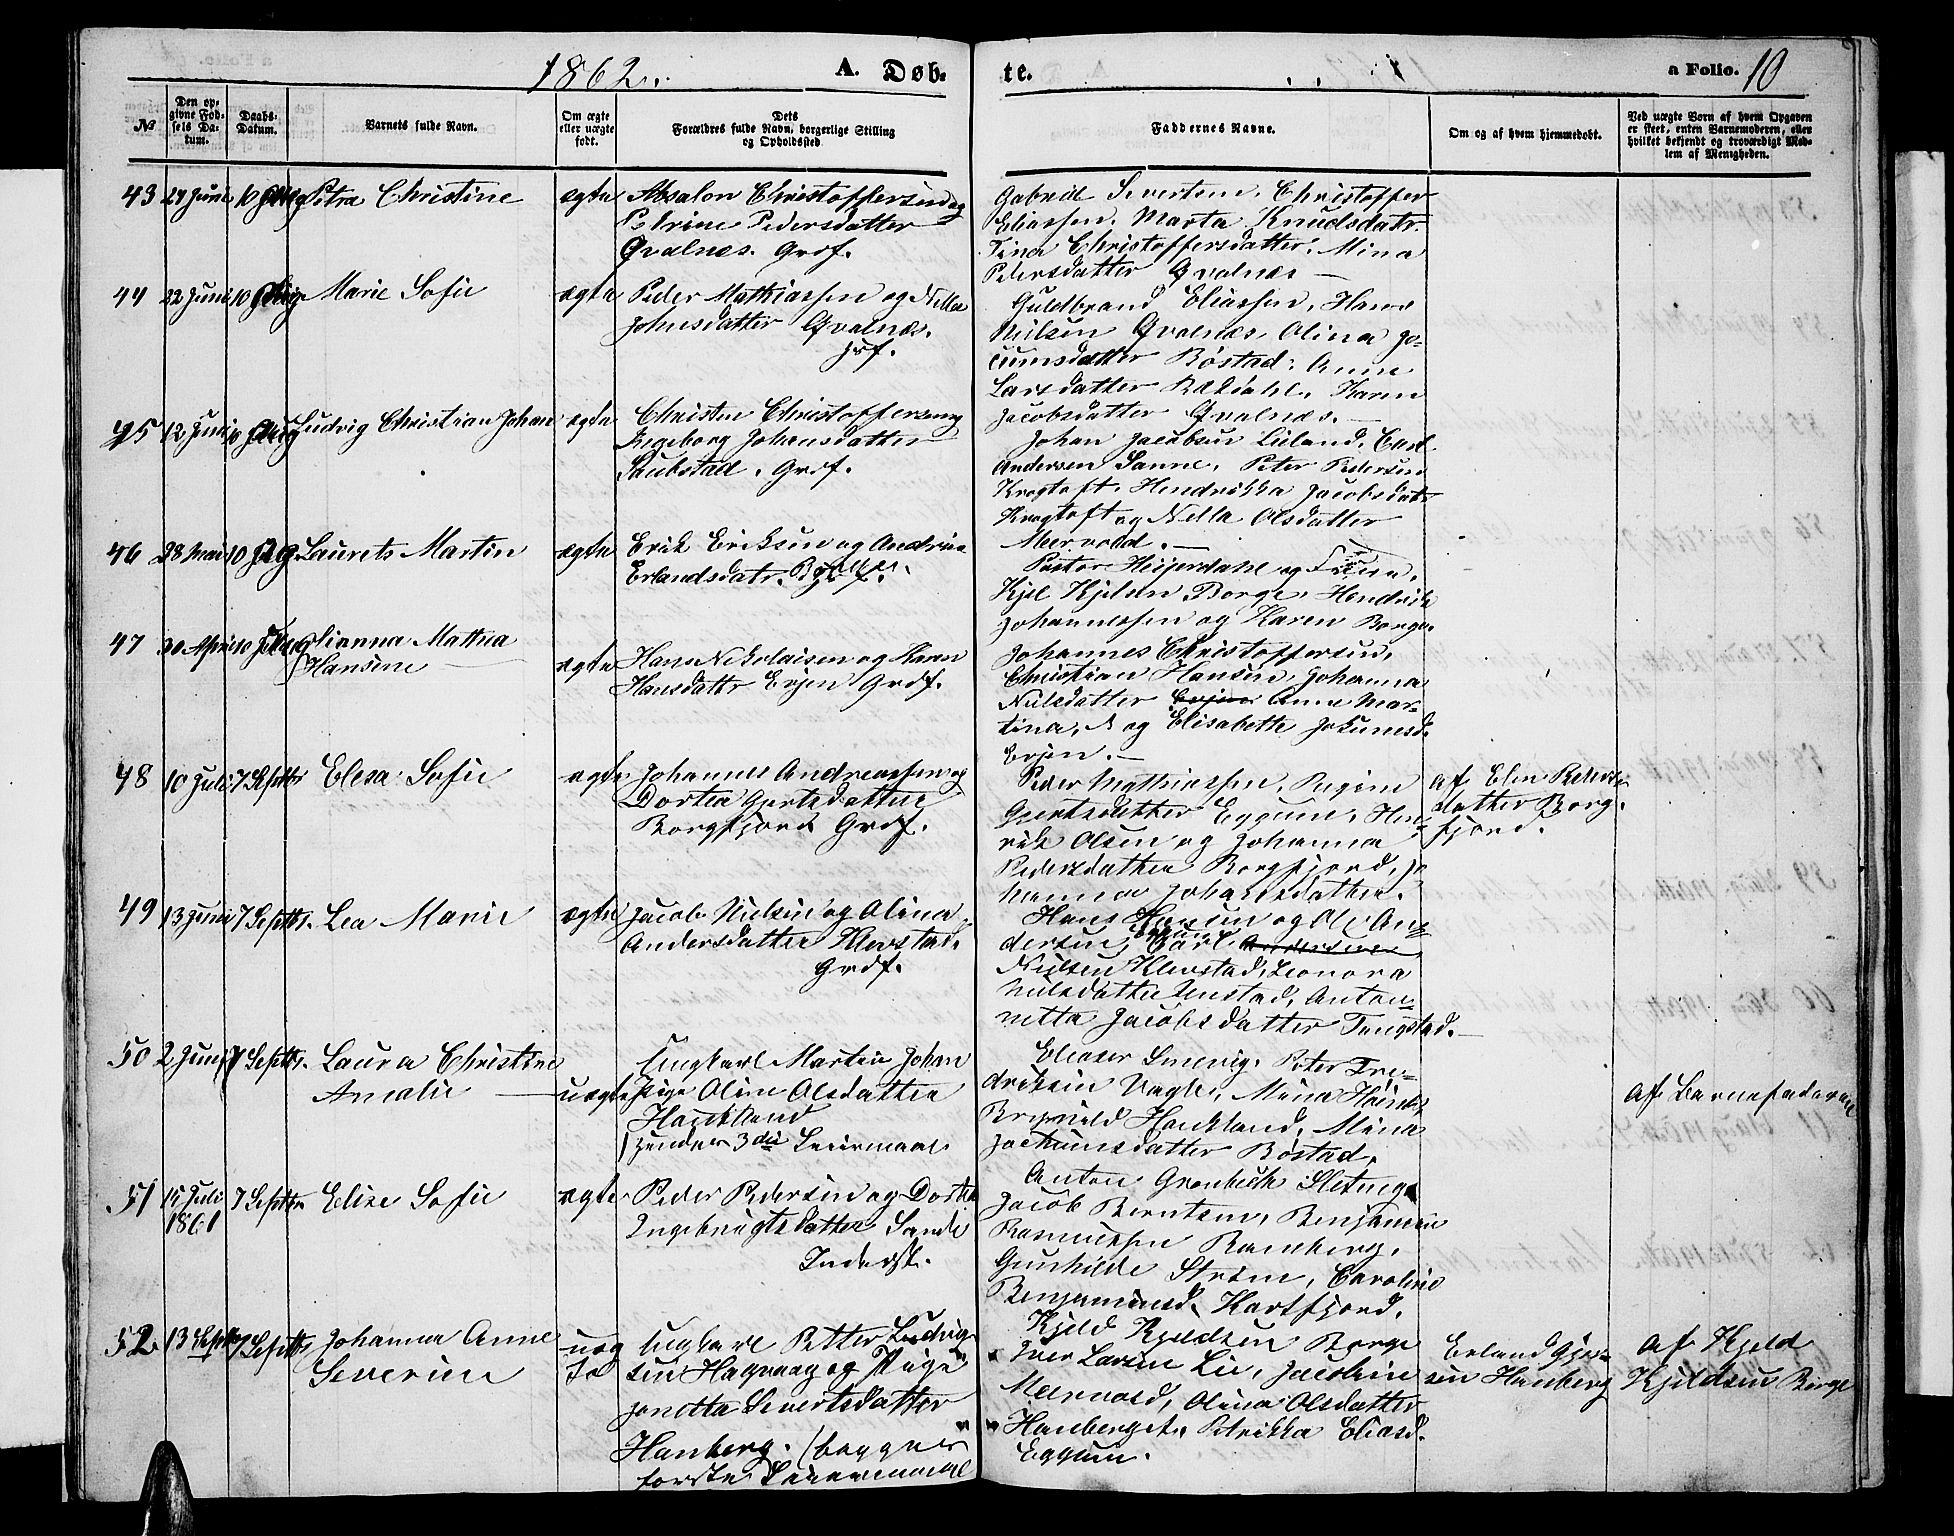 1862. A. Døb-
te. a Folio. 10
№
Den opgivne Fødsels Datum.
Daabs-Datum.
Varnets fulde Navn.
Om ægte eller uægte født.
Dets Forældres fulde Navn, borgerlige Stilling og Opholdssted.
Faddernes Navne.
Om og af hvem hjemmedøbt.
Ved uægte Børn af hvem Opgaven er skeet, enten Barnemoderen, eller hvilket bekjendt og troværdigt Medlem af Menigheden.
43 Petra Christine ægte
Absalon Christoffersen og
Petrine Pedersdatter
Qvalnes. Grdf.
Gabriel Sivertsen, Christoffer
Eliassen, Marta Knudsdatr.
Tina Christoffersdatter, Mina
Pedersdatter Qvalnes —
44 22 Juni 10 Marie Sofie ægte
Peder Mathiassen og Nella
Johnsdatter Qvalnes.
Guldbrand Eliassen, Hans
Nilsen Qvalnæs, Olina Jo-
cumsdatter Bøstad, Anne
Larsdatter Karen
Jacobsdatter Qvalnæs. —
45 12 Juni Ludvig Christian Johan ægte
Christen Christoffersen og
Ingeborg Johansdatter
Saubstad. Grdf.
Johan Jacobsen Liland, Carl
Andersen Sanne, Peter Pedersen
Krogtoft, Hendrikka Jacobsdat.
Krogtoft og Nella Olsdatter
Mærvold. —
46 28 Mai 10 Laurets Martin ægte
Erik Eriksen og Andrea
Erlandsdatr.
Pastor Heijerdahl og Frue,
Kjel Kjelsen Borge, Hendrik
Johannessen og Karen Borge.
47 30 April 10 Mattea
Hansine — ægte
Hans Nikolaisen og Karen
Hansdattr Evjen Grdf.
Johannes Christoffersen,
Christian Hansen, Johanna
Nilsdatter Anne Mar-
tina, N og Elisabeth Jokumsd.
Evjen. —
48 10 Juli 7 Septbr Elesa Sofie ægte
Johannes Andreassen og
Dortea Gjertsdatter
Borgfjord Grdf.
Peder Mathiassen, Regine
Gjertsdatter Eggum, Hen-
rik Olsen og Johanna
Pedersdatter Borgfjord, Jo
hanna Johansdatter.
af Elen Peders-
datter Borg-
fjord.
49 13 Juni 7 Septbr. Lea Marie ægte
Jacob Nielsen og Olina
Andersdatter Klevstad.
Grdf.
Hans Hansen og Ole An-
dersen, Carl
Nielsen Klevstad, Leonora
Nilsdatter Unstad, Anton-
netta Jacobsdatter Tangstad. —
50 2 Juni 7 Septbr. Laura Christine
Amalie — uægte
Ungkarl Martin Johan
Pige Oline Olsdatter
Haukland
3die Leiermaal
Elieser Smevig, Peter Fre-
driksen Vagle, Mina
Haukland, Mina
Jochumsdatter Bøstad.
af Barnefaderen
51 15 Juli
1861 7 Septbr Elise Sofie ægte
Peder Pedersen og Dortea
Ingebrigtsdatter Sande
Inderst.
Anton Grønbeck Sletnes
Jacob Berntsen, Benjamin
Rasmussen Ramberg,
Gunhilde Strøm, Caroline
Benjaminsd. Hartfjord.
52 13 7 Septbr Johanna Anne
Severine uæg
te
Ungkarl Petter Ludvig-
sen Hagvaag og Pige
Jonetta Sivertsdatter
Hanberg. (begges
første Leiermaal
Kjeld Kjeldsen Borge
Iver Larsen Lie,
Mærvold, Olina Olsdatter
Hanberget, Petrikka Eliasd.
Eggum.
Erland Gjer-
sen Hanberg
af Kjeld
Kjeldsen Borge